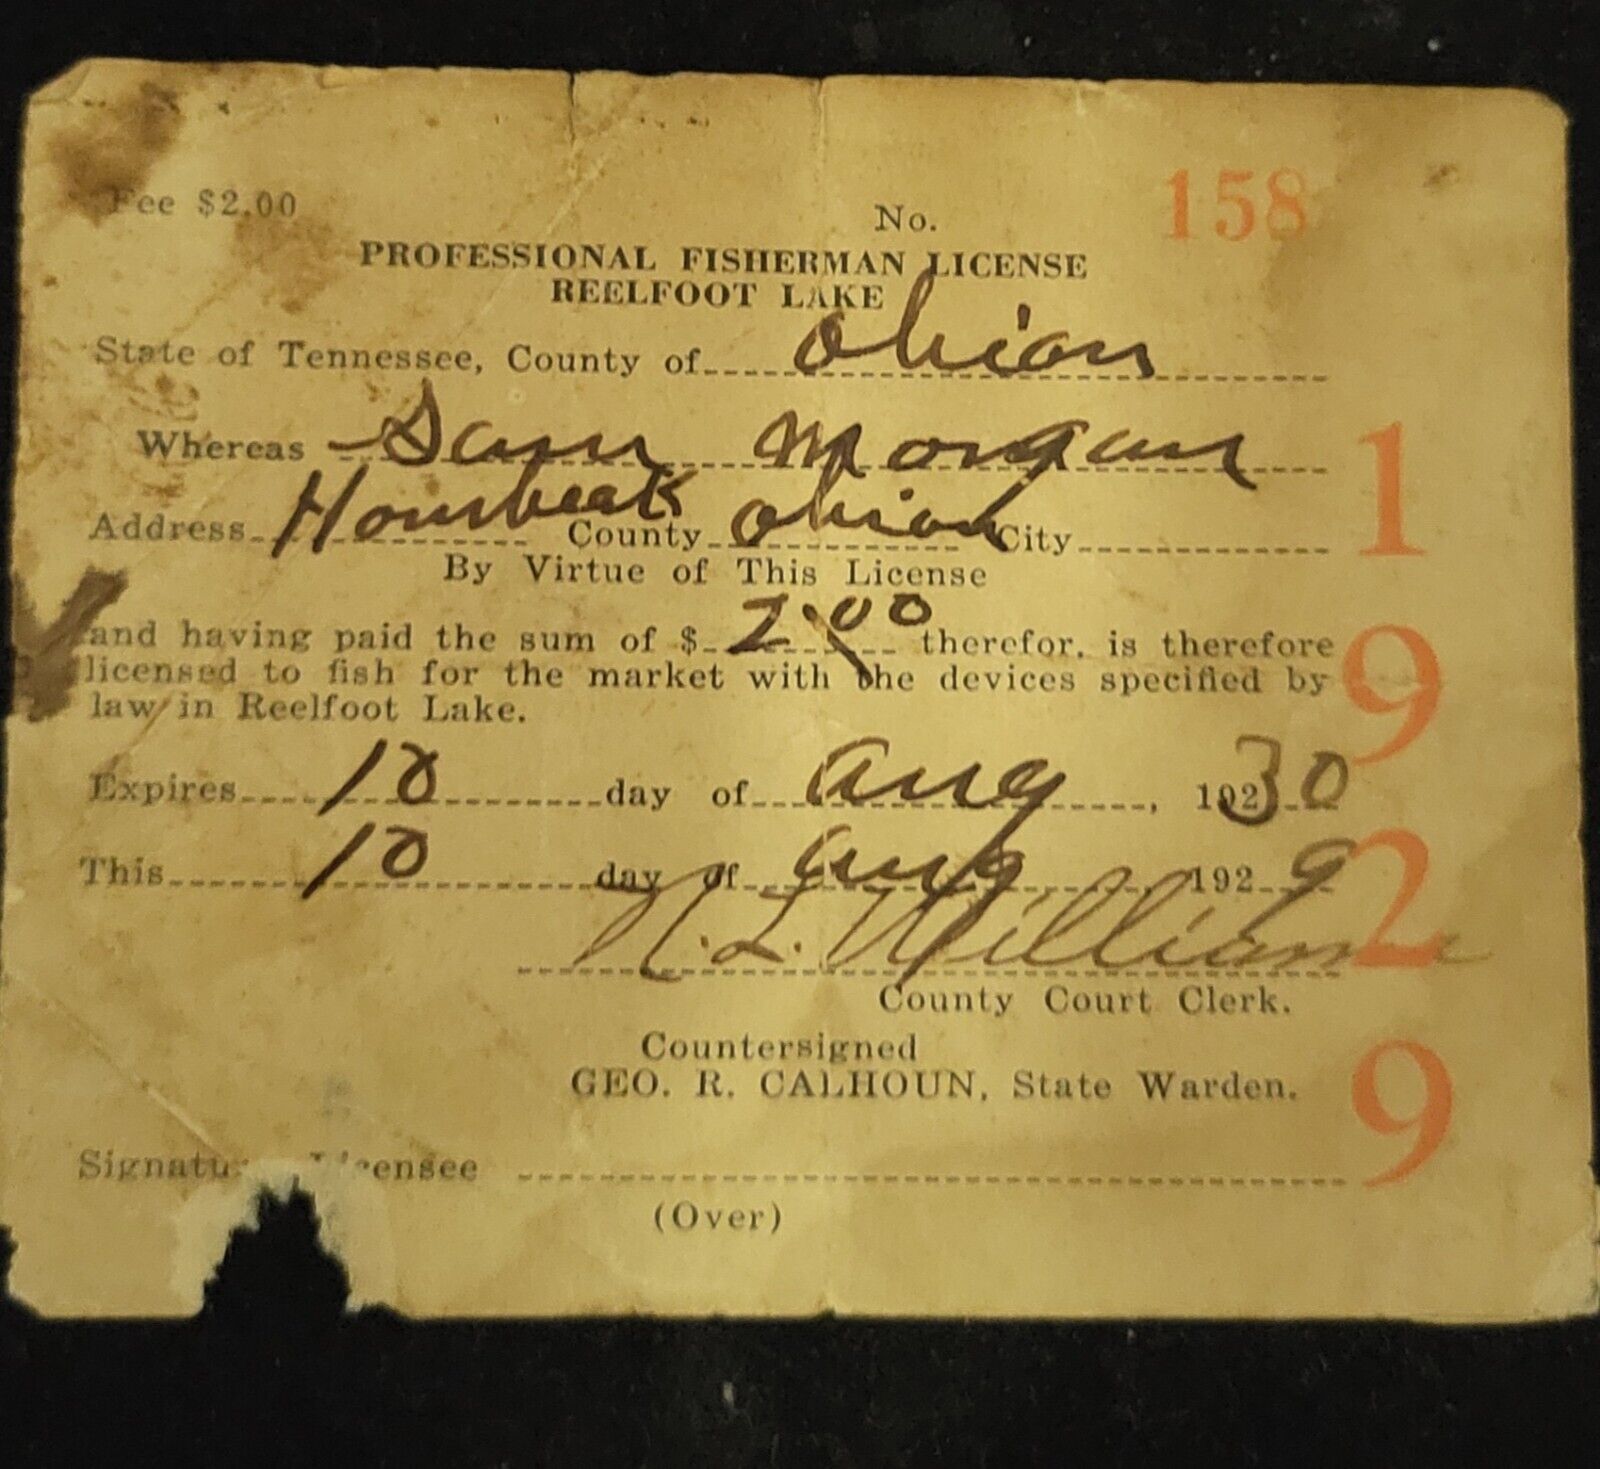 Fee $2.00
No. 158
PROFESSIONAL FISHERMAN LICENSE
REELFOOT LAKE
State of Tennessee, County of Obion
Whereas Sam Morgan
Address Hornbeak County Obion City
By Virtue of This License
and having paid the sum of $ 2.00 therefor, is therefore
licensed to fish for the market with the devices specified by
law in Reelfoot Lake.
Expires 10 day of Aug, 19230
This 10 day of Aug 1929
N. L. Williams
County Court Clerk.
Countersigned
GEO. R. CALHOUN, State Warden.
Signatu Licensee
(Over)
1929